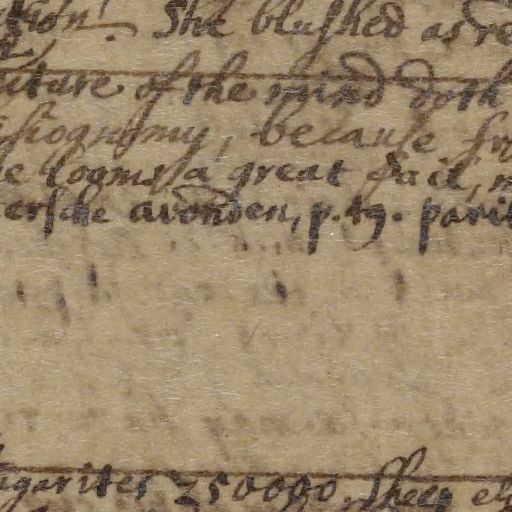 tion. She blushed as re
uture of the mind doth
isiognomy, because fr
le looms a great deal,
ersche avonden, p. 19. parit
garites 250000. They el